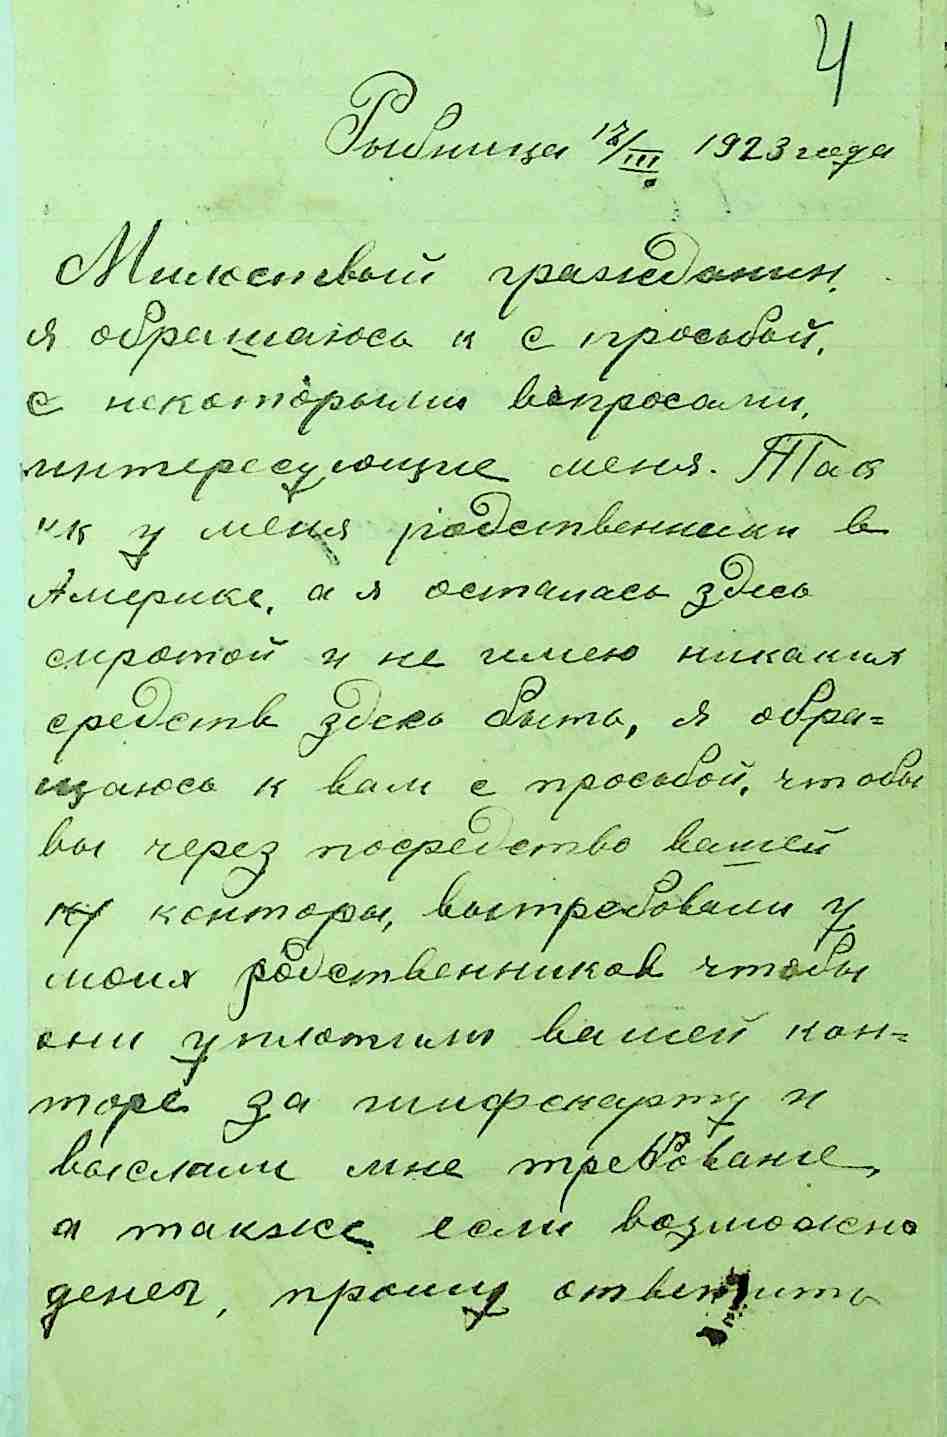 4
Рыбница 12/III 1923 года
Милостевый гражданин,
я обрашаюсь к с просьбой,
с некоторыми вопросами,
интересующие меня. Так
"к у меня родственники в
Америке, а я осталась здесь
сиротой и не имею никаких
средств здесь быть, я обра=
щаюсь к вам с просьбой, чтобы
вы через посредство вашей
конторы, вытребовали у
моих родственников чтобы
они уплотили вашей кон=
торе за шифскарту и
выслали мне требование,
а также если возможно
денег, прошу ответить